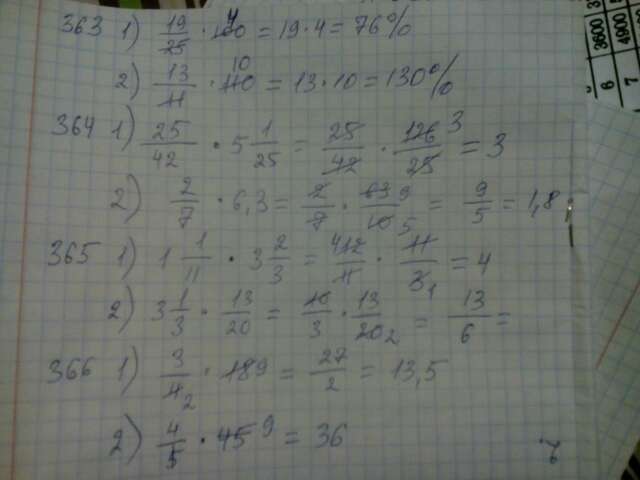 363 1) 19/25 · 100 4 = 19 · 4 = 76%
2) 13/11 · 110 10 = 13 · 10 = 130%
364 1) 25/42 · 5 1/25 = 25/42 · 126/25 3 = 3
2) 2/7 · 6,3 = 2/7 · 63/10 9 5 = 9/5 = 1,8
365 1) 1 1/11 · 3 2/3 = 4 12/11 · 11/3 1 = 4
2) 3 1/3 · 13/20 = 10/3 · 13/20 2 = 13/6 =
366 1) 3/4 2 · 18 9 = 27/2 = 13,5
2) 4/5 · 45 9 = 36
3600
6
4900
7